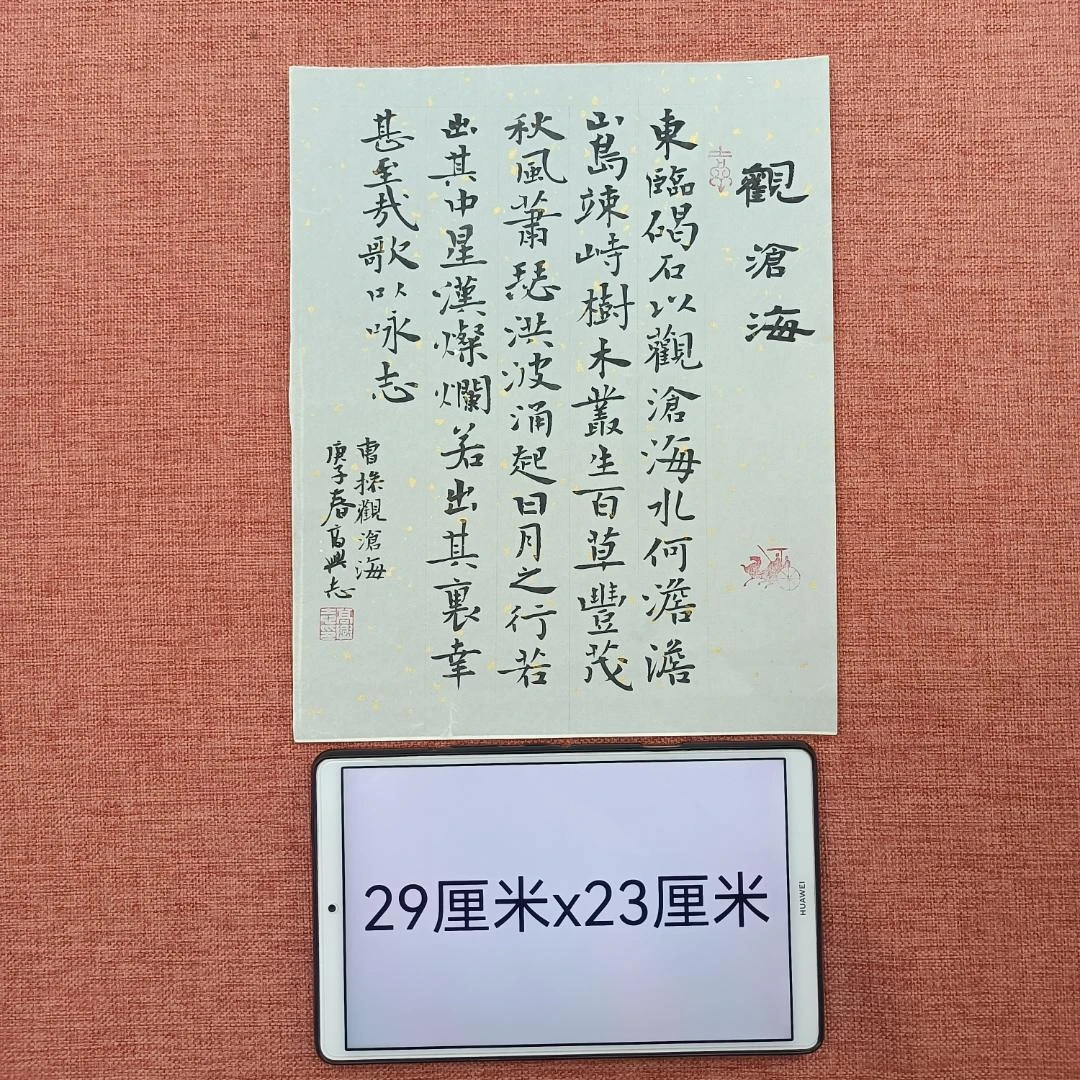 觀滄海
東臨碣石以觀滄海水何澹澹
山島竦峙樹木叢生百草豐茂
秋風蕭瑟洪波涌起日月之行若
出其中星漢燦爛若出其裏幸
甚至哉歌以咏志
曹操觀滄海
庚子春高興志
29厘米x23厘米
HUAWEI